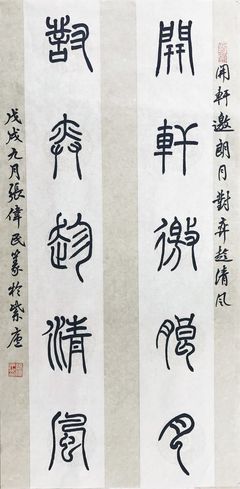 開軒邀朗月對弈趁清風
開軒邀朗月
對弈趁清風
戊戌九月張偉民篆於紫廬